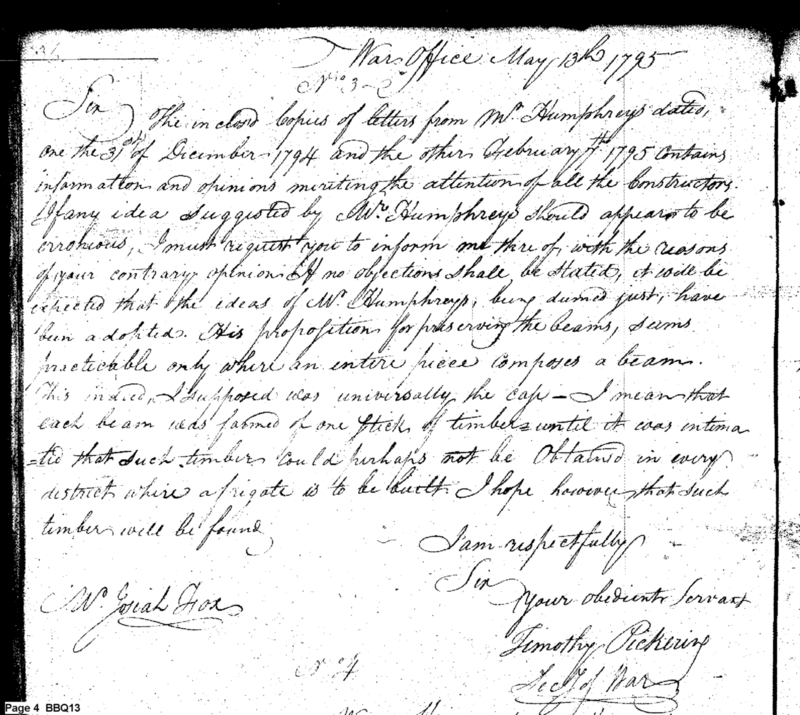 War Office May 13th 1795
No 3
Sir
The inclosd Copies of letters from Mr Humphreys dated,
one the 31st of December 1794 and the other February 7th 1795 contains
information and opinions meriting the attention of all the Constructors.
If any idea suggested by Mr Humphreys should appear to be
erronious, I must request you to inform me there of, with the reasons
of your contrary opinion. If no objections shall be stated, it will be
expected that the ideas of Mr Humphreys, being deemed just, have
been adopted. His proposition for preserving the beams, seems
practicable only where an entire piece composes a beam.
This indeed, I supposed was universally the case – I mean that
each beam was formed of one stick of timber = until it was intima
=ted that such timber could perhaps not be Obtained in every
district where a frigate is to be built. I hope however that such
timber will be found
I am respectfully
Sir
Your obedient Servant
Mr Josiah Fox
Timothy Pickering
Secy of War
No 4
Page 4 BBQ13